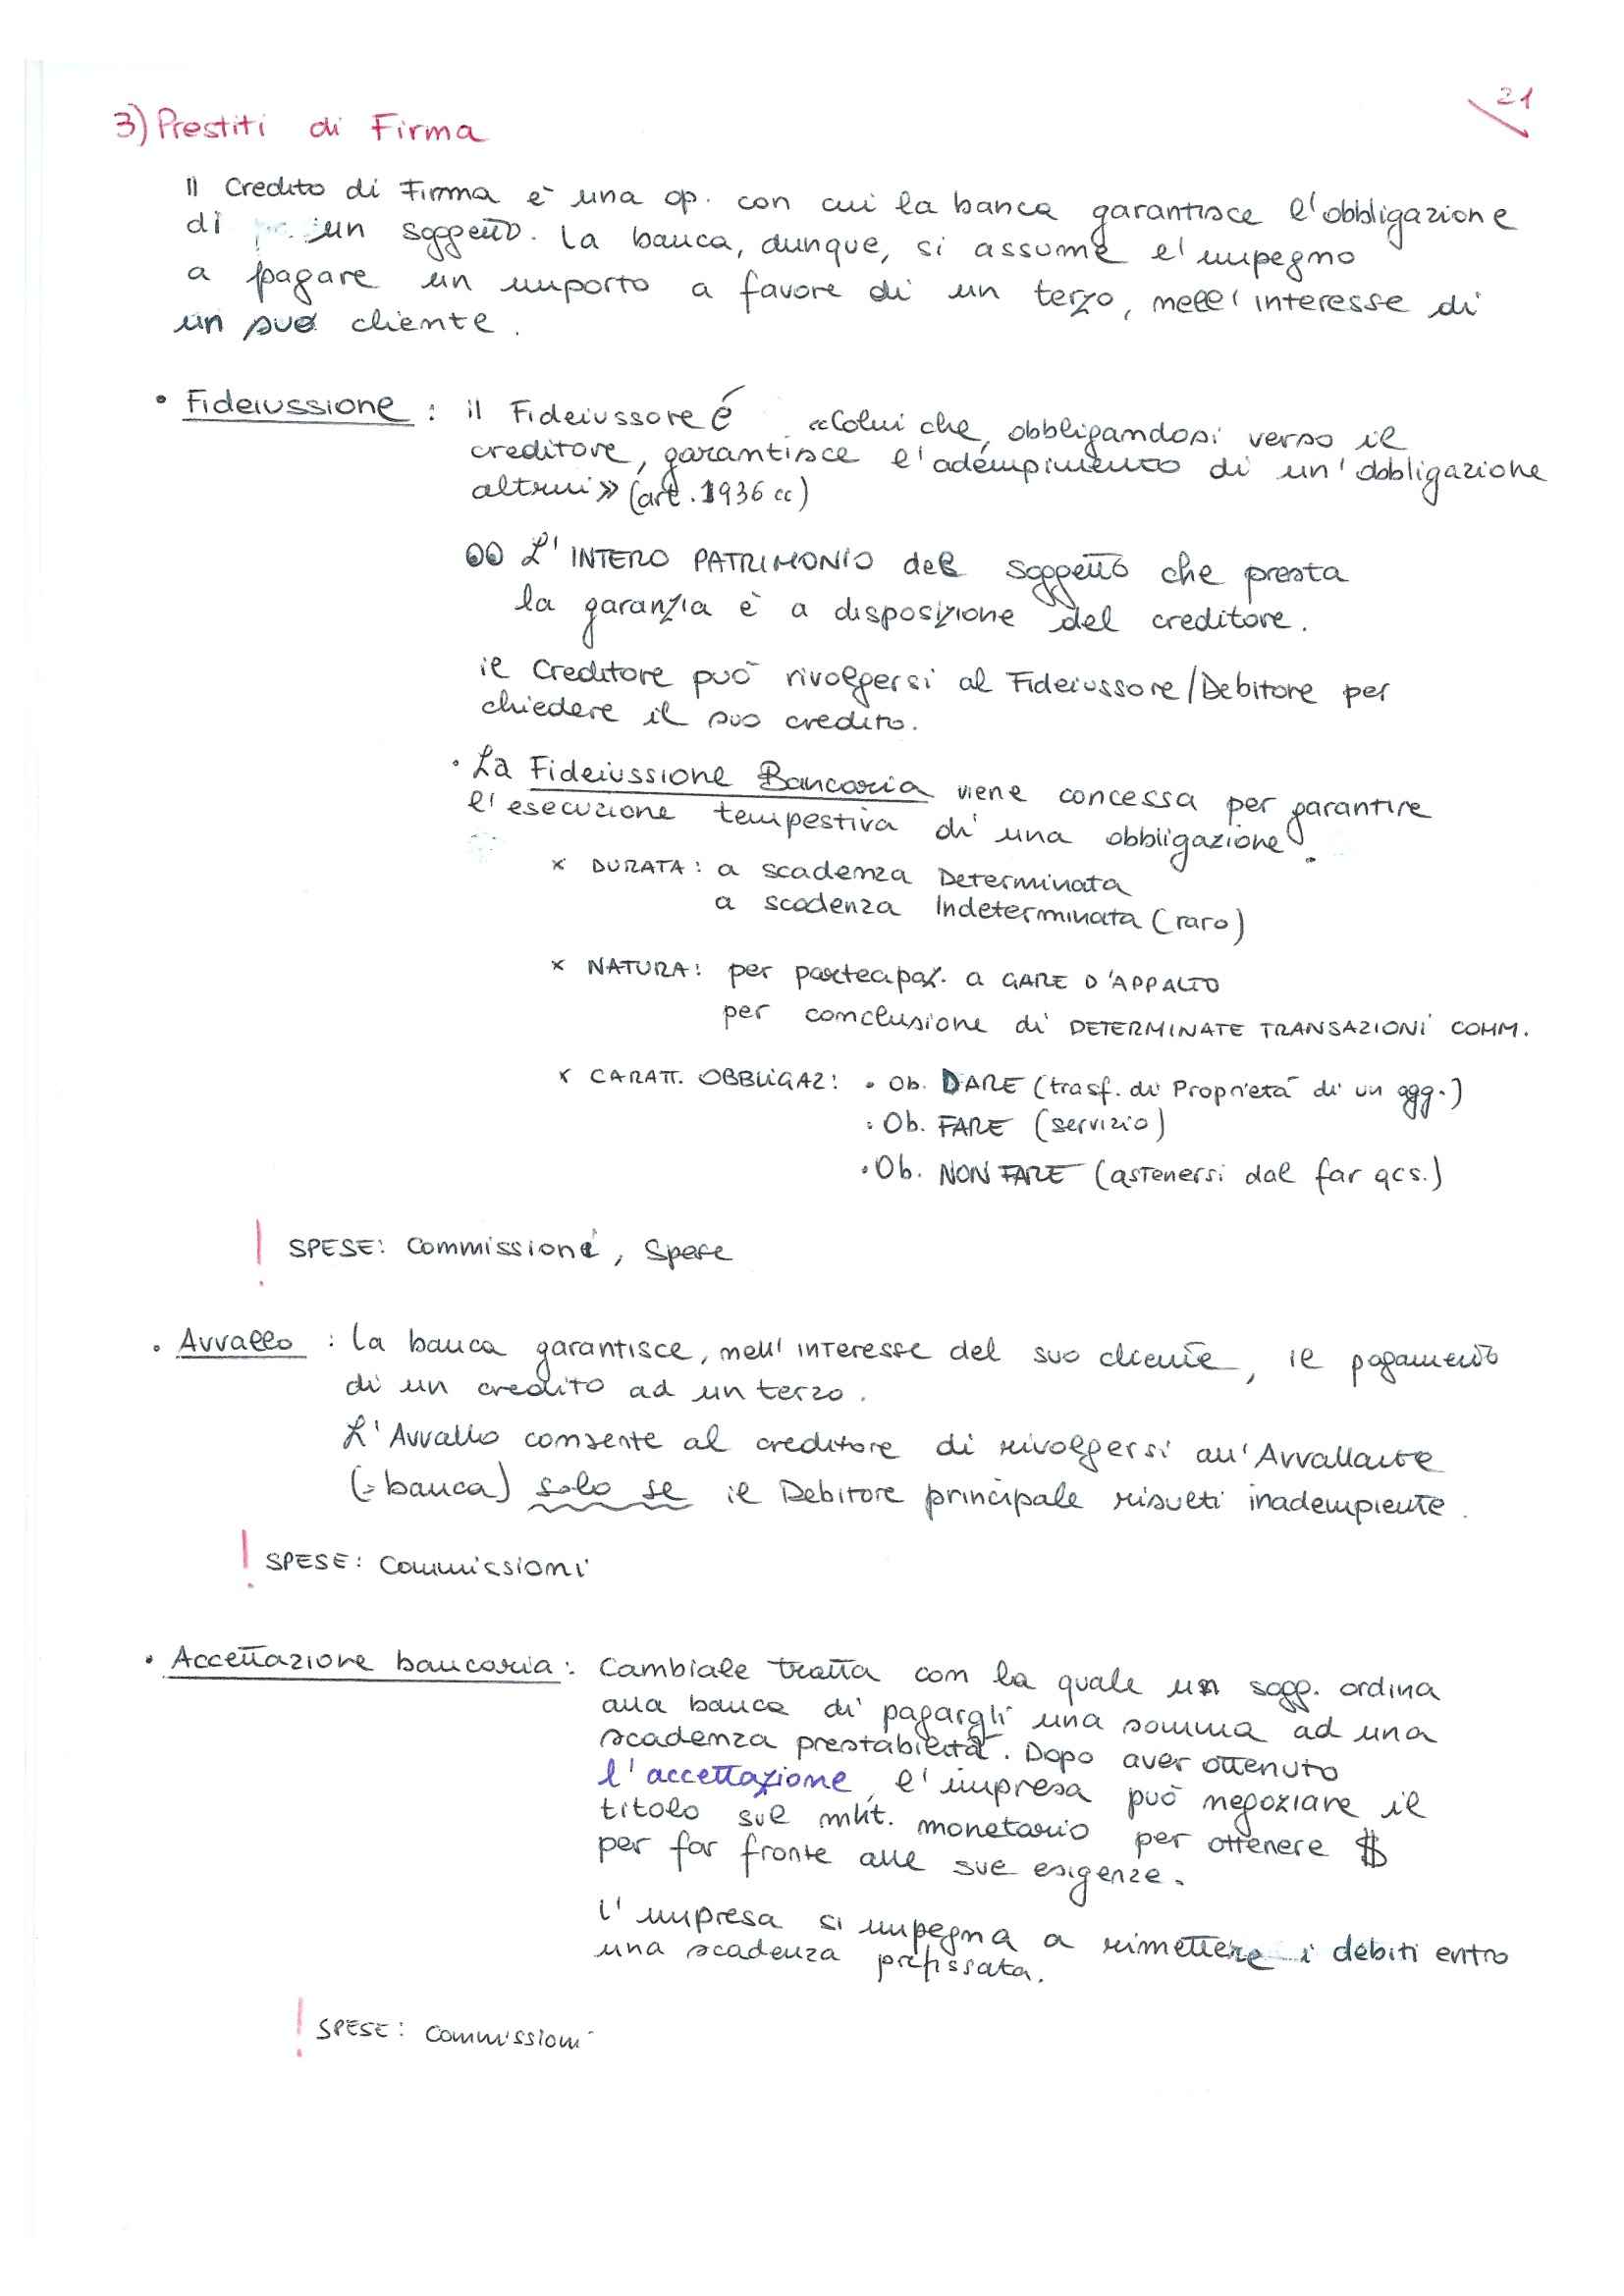 21
3) Prestiti di Firma
Il Credito di Firma è una op. con cui la banca garantisce l'obbligazione
di un soggetto. La banca, dunque, si assume l'impegno
a pagare un importo a favore di un terzo, nell'interesse di
un suo cliente.
• Fideiussione : il Fideiussore é «Colui che, obbligandosi verso il
creditore, garantisce l'adempimento di un'obbligazione
altrui» (art. 1936 cc)
L'INTERO PATRIMONIO del soggetto che presta
la garanzia è a disposizione del creditore.
il Creditore può rivolgersi al Fideiussore/Debitore per
chiedere il suo credito.
• La Fideiussione Bancaria viene concessa per garantire
l'esecuzione tempestiva di una obbligazione.
x DURATA: a scadenza Determinata
a scadenza Indeterminata (raro)
x NATURA: per partecipaz. a GARE D'APPALTO
per conclusione di DETERMINATE TRANSAZIONI COMM.
x CARATT. OBBLIGAZ: • Ob. DARE (trasf. di Proprietà di un ogg.)
• Ob. FARE (servizio)
• Ob. NON FARE (astenersi dal far qcs.)
! SPESE: Commissioni, Spese
• Avvallo : la banca garantisce, nell'interesse del suo cliente, il pagamento
di un credito ad un terzo.
L'Avvallo consente al creditore di rivolgersi all'Avvallante
(= banca) solo se il Debitore principale risulti inadempiente.
! SPESE: Commissioni
• Accettazione bancaria: Cambiale tratta con la quale un sogg. ordina
alla banca di pagargli una somma ad una
scadenza prestabilita. Dopo aver ottenuto
l'accettazione, l'impresa può negoziare il
titolo sul mkt. monetario per ottenere $
per far fronte alle sue esigenze.
L'impresa si impegna a rimettere i debiti entro
una scadenza prefissata.
! SPESE: Commissioni